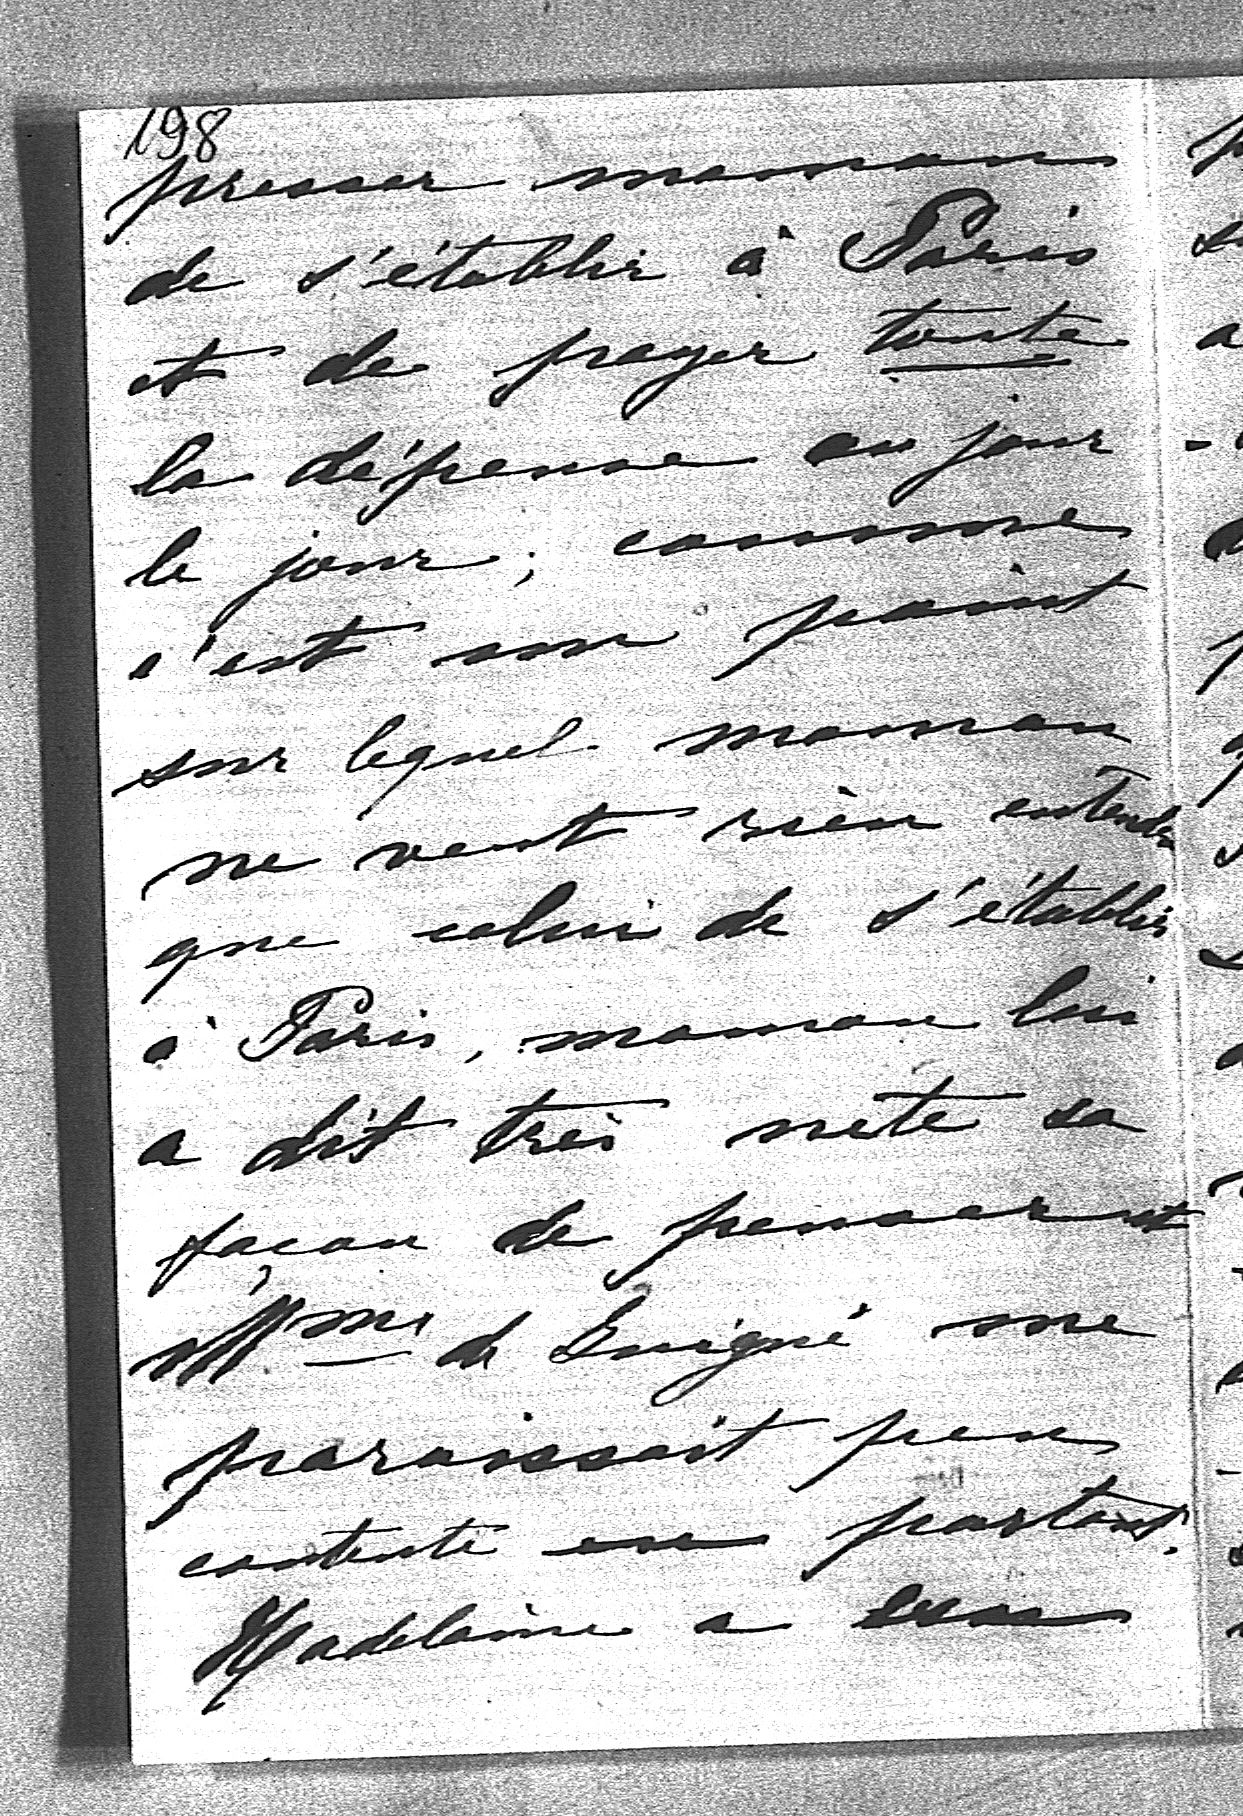 198
presser maman
de s'établir à Paris
et de payer toute
la dépense au jour
le jour; comme
c'est un point
sur lequel maman
ne veut rien entendre
que celui de s'établir
à Paris, maman lui
a dit très nete sa
façon de penser et
Mme de Guigné me
paraissait peu
contente en partant.
Madelaine a